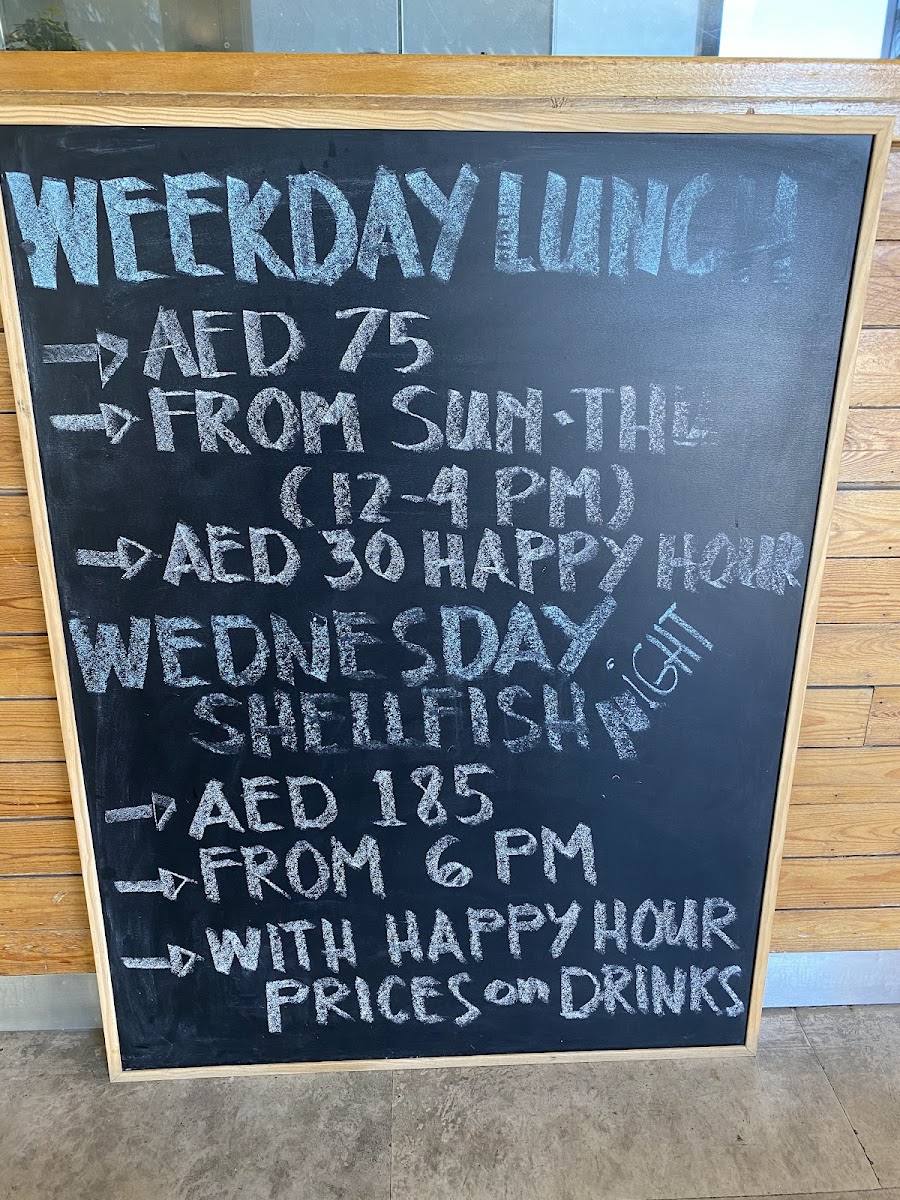 WEEKDAY LUNCH
→ AED 75
→ FROM SUN·THU
(12-4 PM)
→ AED 30 HAPPY HOUR
WEDNESDAY
SHELLFISH NIGHT
→ AED 185
→ FROM 6 PM
→ WITH HAPPY HOUR
PRICES on DRINKS